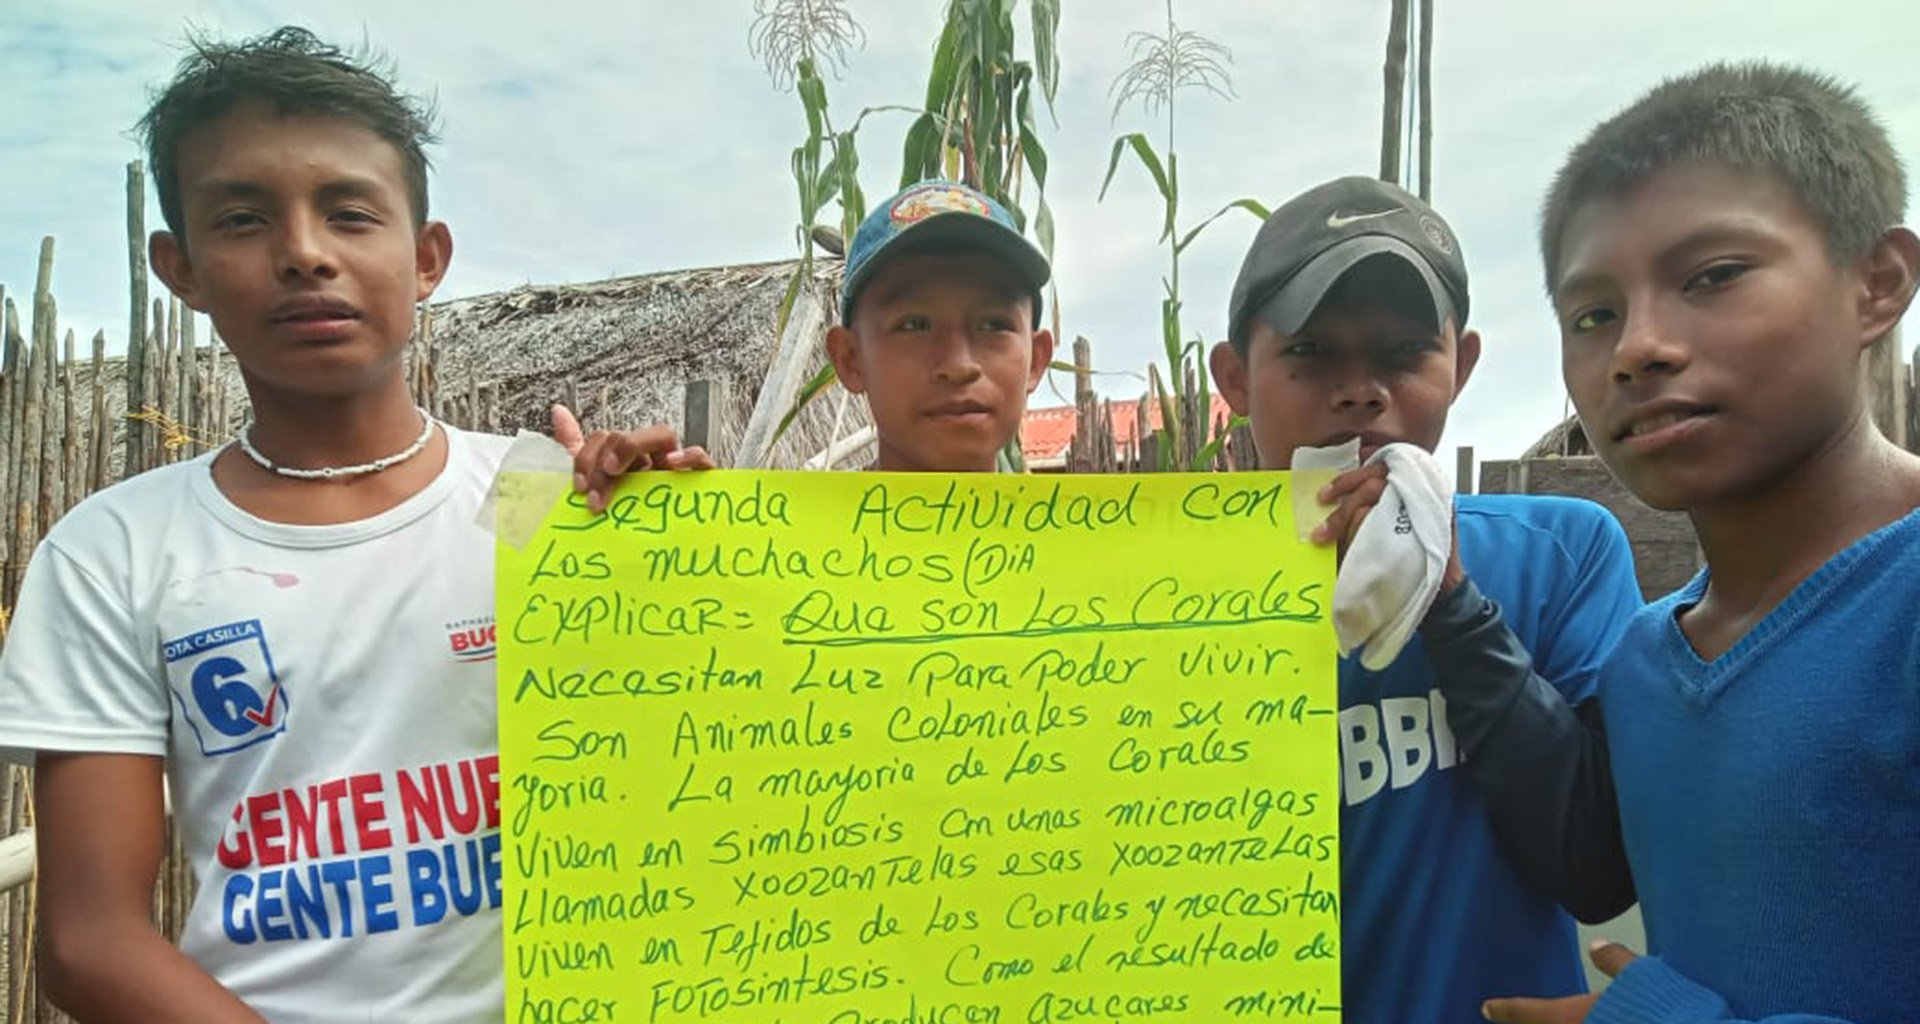 Segunda Actividad con
Los muchachos (DiA
EXPlicaR = Que son Los Corales
Necesitan Luz Para Poder vivir.
Son Animales Coloniales en su ma-
yoria. La mayoria de Los Corales
Viven en simbiosis con unas microalgas
Llamadas XoozanTelas esas XoozanTeLas
viven en Tejidos de Los Corales y necesitan
hacer FOTOsintesis. Como el resultado de
Producen azucares mini-
OTA CASILLA
6
BUC
GENTE NUE
GENTE BUE
BBV